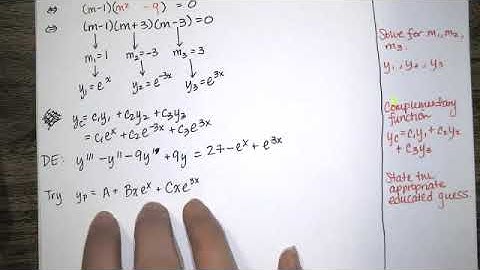 ⇔ (m-1)(m² - 9) = 0
⇔ (m-1)(m+3)(m-3)=0
m₁=1 m₂=-3 m₃=3
y₁=eˣ y₂=e⁻³ˣ y₃=e³ˣ
y_c = c₁y₁ + c₂y₂ + c₃y₃
= c₁eˣ + c₂e⁻³ˣ + c₃e³ˣ
DE: y''' - y'' - 9y' + 9y = 27 - eˣ + e³ˣ
Try y_p = A + Bxeˣ + Cxe³ˣ
Solve for m₁, m₂,
m₃.
y₁, y₂, y₃
Complementary
function
y_c = c₁y₁ + c₂y₂
+ c₃y₃
State the
appropriate
educated guess.